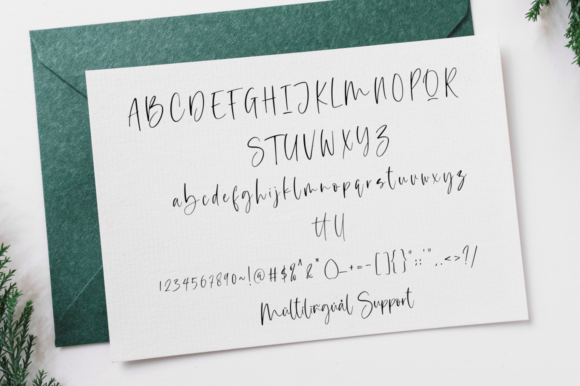 ABCDEFGHIJKLMNOPQR
STUVWXYZ
abcdefghijklmnopqrstuvwxyz
1234567890~!@#$%^&*()_+=-[]{}":;'",.<>?/
Multilinguál Support